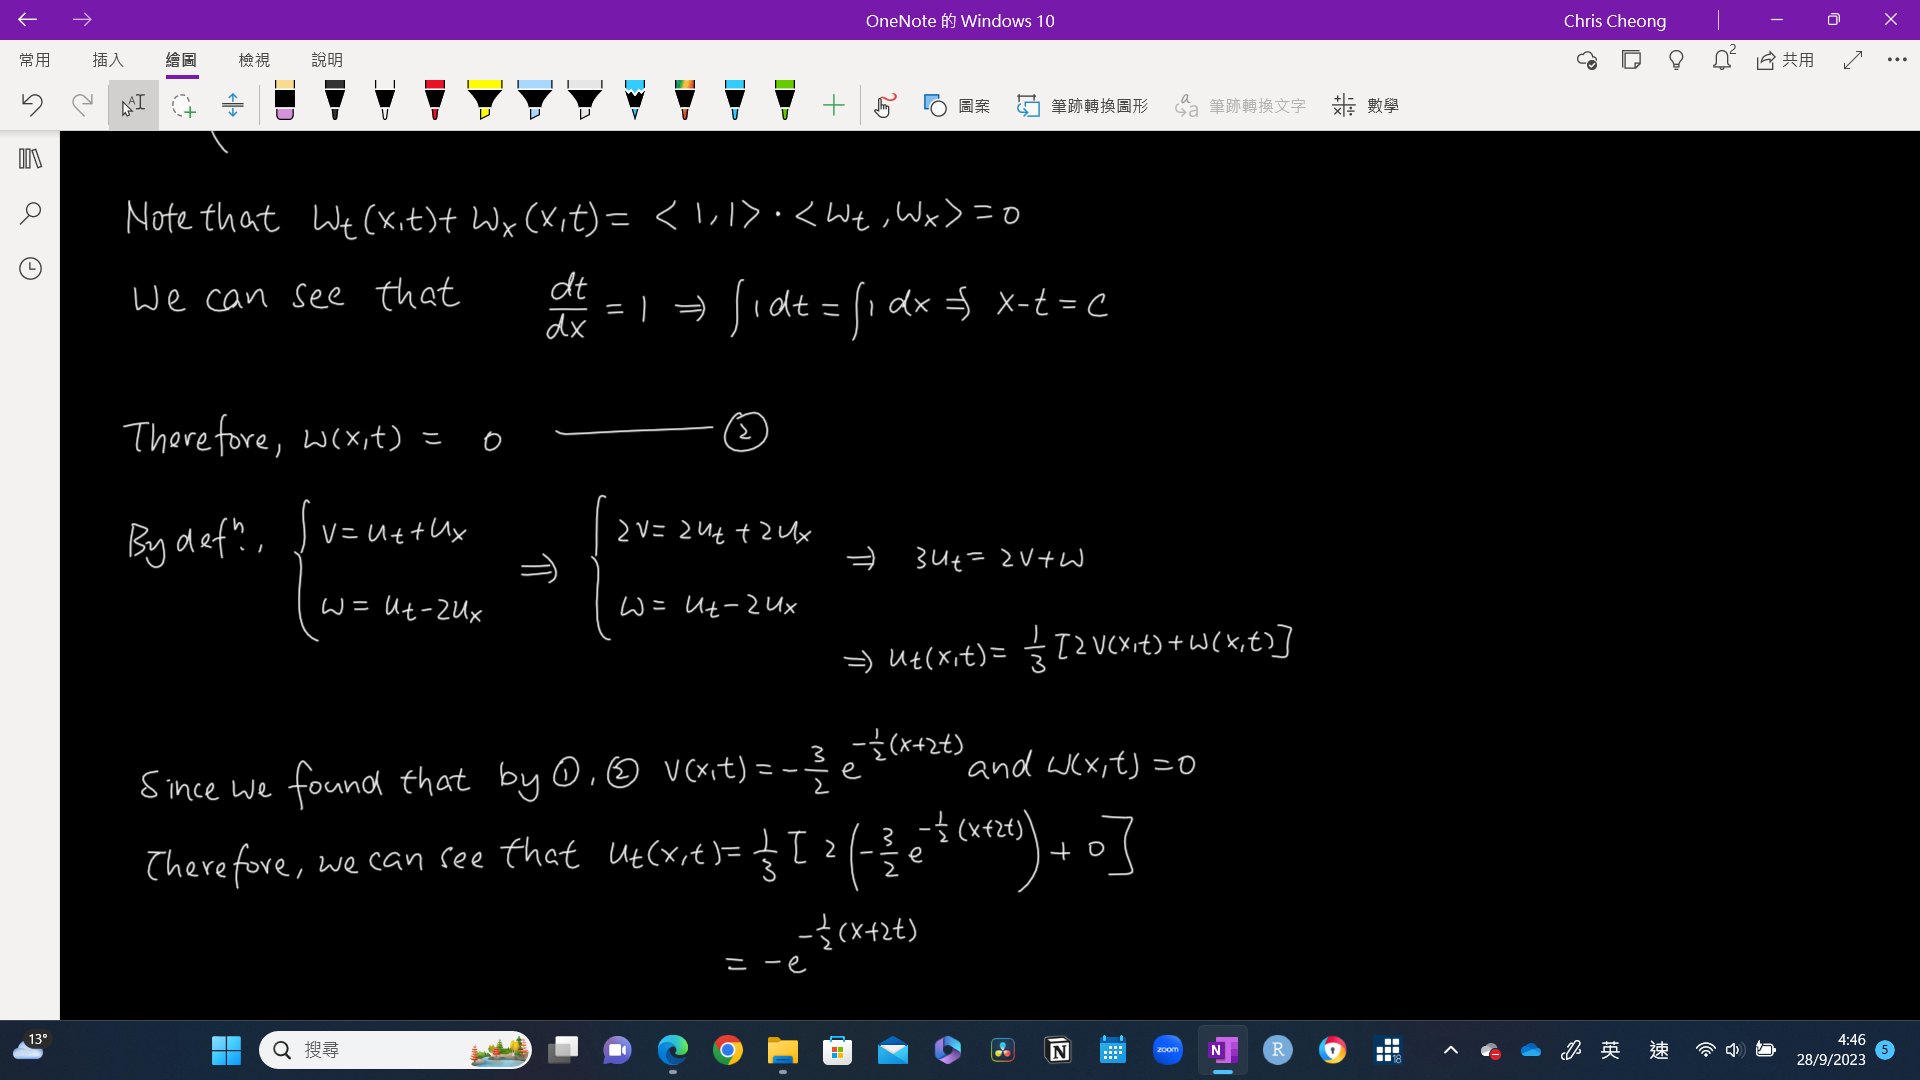 OneNote 的 Windows 10
Chris Cheong
常用 插入 繪圖 檢視 說明
2
共用
圖案 筆跡轉換圖形 筆跡轉換文字 數學
Note that Wt(x,t)+Wx(x,t)= <1,1>·<Wt,Wx>=0
We can see that dt/dx = 1 ⇒ ∫1dt = ∫1dx ⇒ x-t=c
Therefore, w(x,t) = 0 ——— ②
By defⁿ., { v=ut+ux ⇒ { 2v=2ut+2ux ⇒ 3ut=2v+w
w=ut-2ux w=ut-2ux
⇒ ut(x,t)= 1/3 [2v(x,t)+w(x,t)]
Since we found that by ①,② v(x,t)=-3/2 e^{-1/2(x+2t)} and w(x,t)=0
Therefore, we can see that ut(x,t)= 1/3 [2(-3/2 e^{-1/2(x+2t)})+0]
= -e^{-1/2(x+2t)}
13°
搜尋
zoom
N
R
18
英
速
4:46
28/9/2023
5